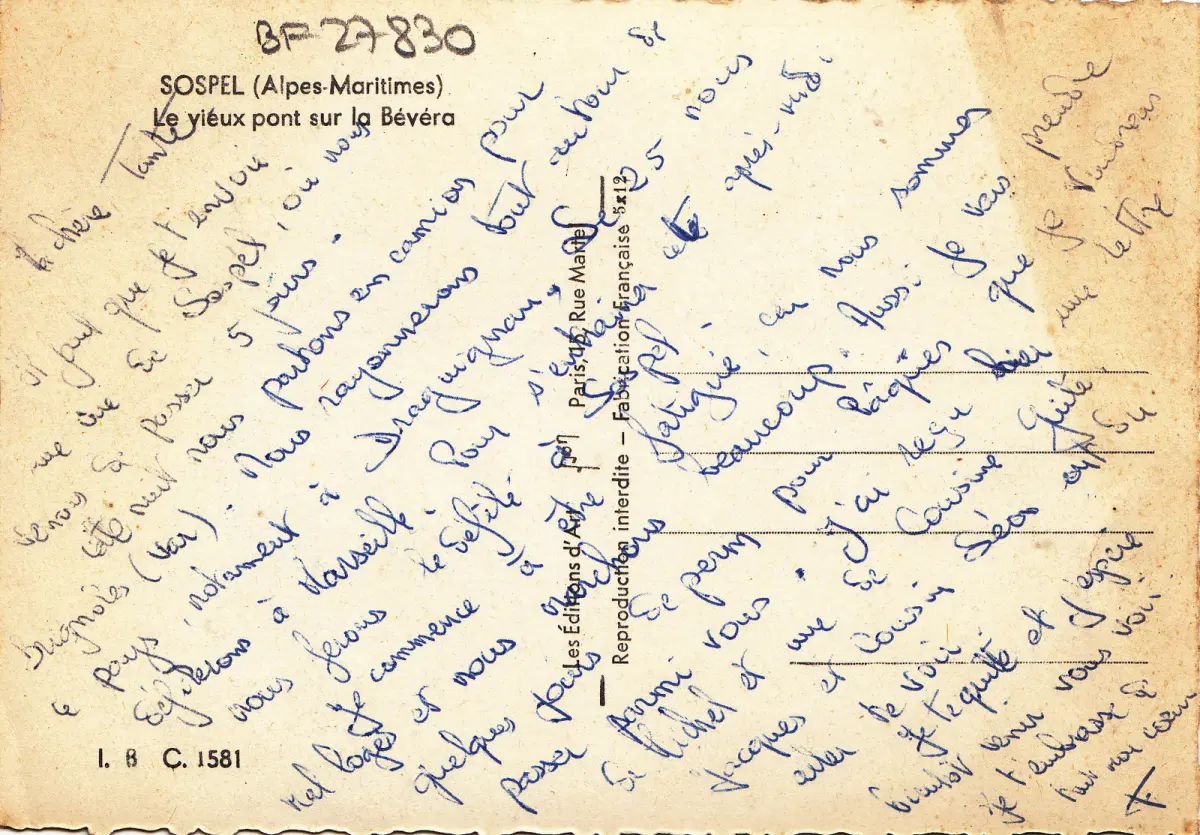 BF 27830
SOSPEL (Alpes-Maritimes)
Le vieux pont sur la Bévéra
Ma chère Tante
Il faut que je t'envoie
une vue de Sospel, où nous
venons de passer 5 jours.
Cette nuit nous partons en camions pour
Brignoles (Var). Nous rayonnerons tout autour de
le pays, notamment à Draguignan. Le 25 nous
défilerons à Marseille. Pour s'entraîner
nous ferons le défilé à Sospel cette après-midi.
Je commence à être fatigué, car nous sommes
mal logés et nous marchons beaucoup. Aussi je vais prendre
quelques jours de perm pour Pâques que je viendrais
passer parmi vous. J'ai reçu hier une lettre
de Michel et une de Cousine Guite.
Jacques et Cousin Léon ont du
aller te voir.
Je te quitte et j'espère
bientôt venir vous voir.
Je t'embrasse de
tout mon cœur
Les Éditions d'Art
Paris, 15, Rue Martel
Reproduction interdite — Fabrication Française 5x12
I. B C. 1581